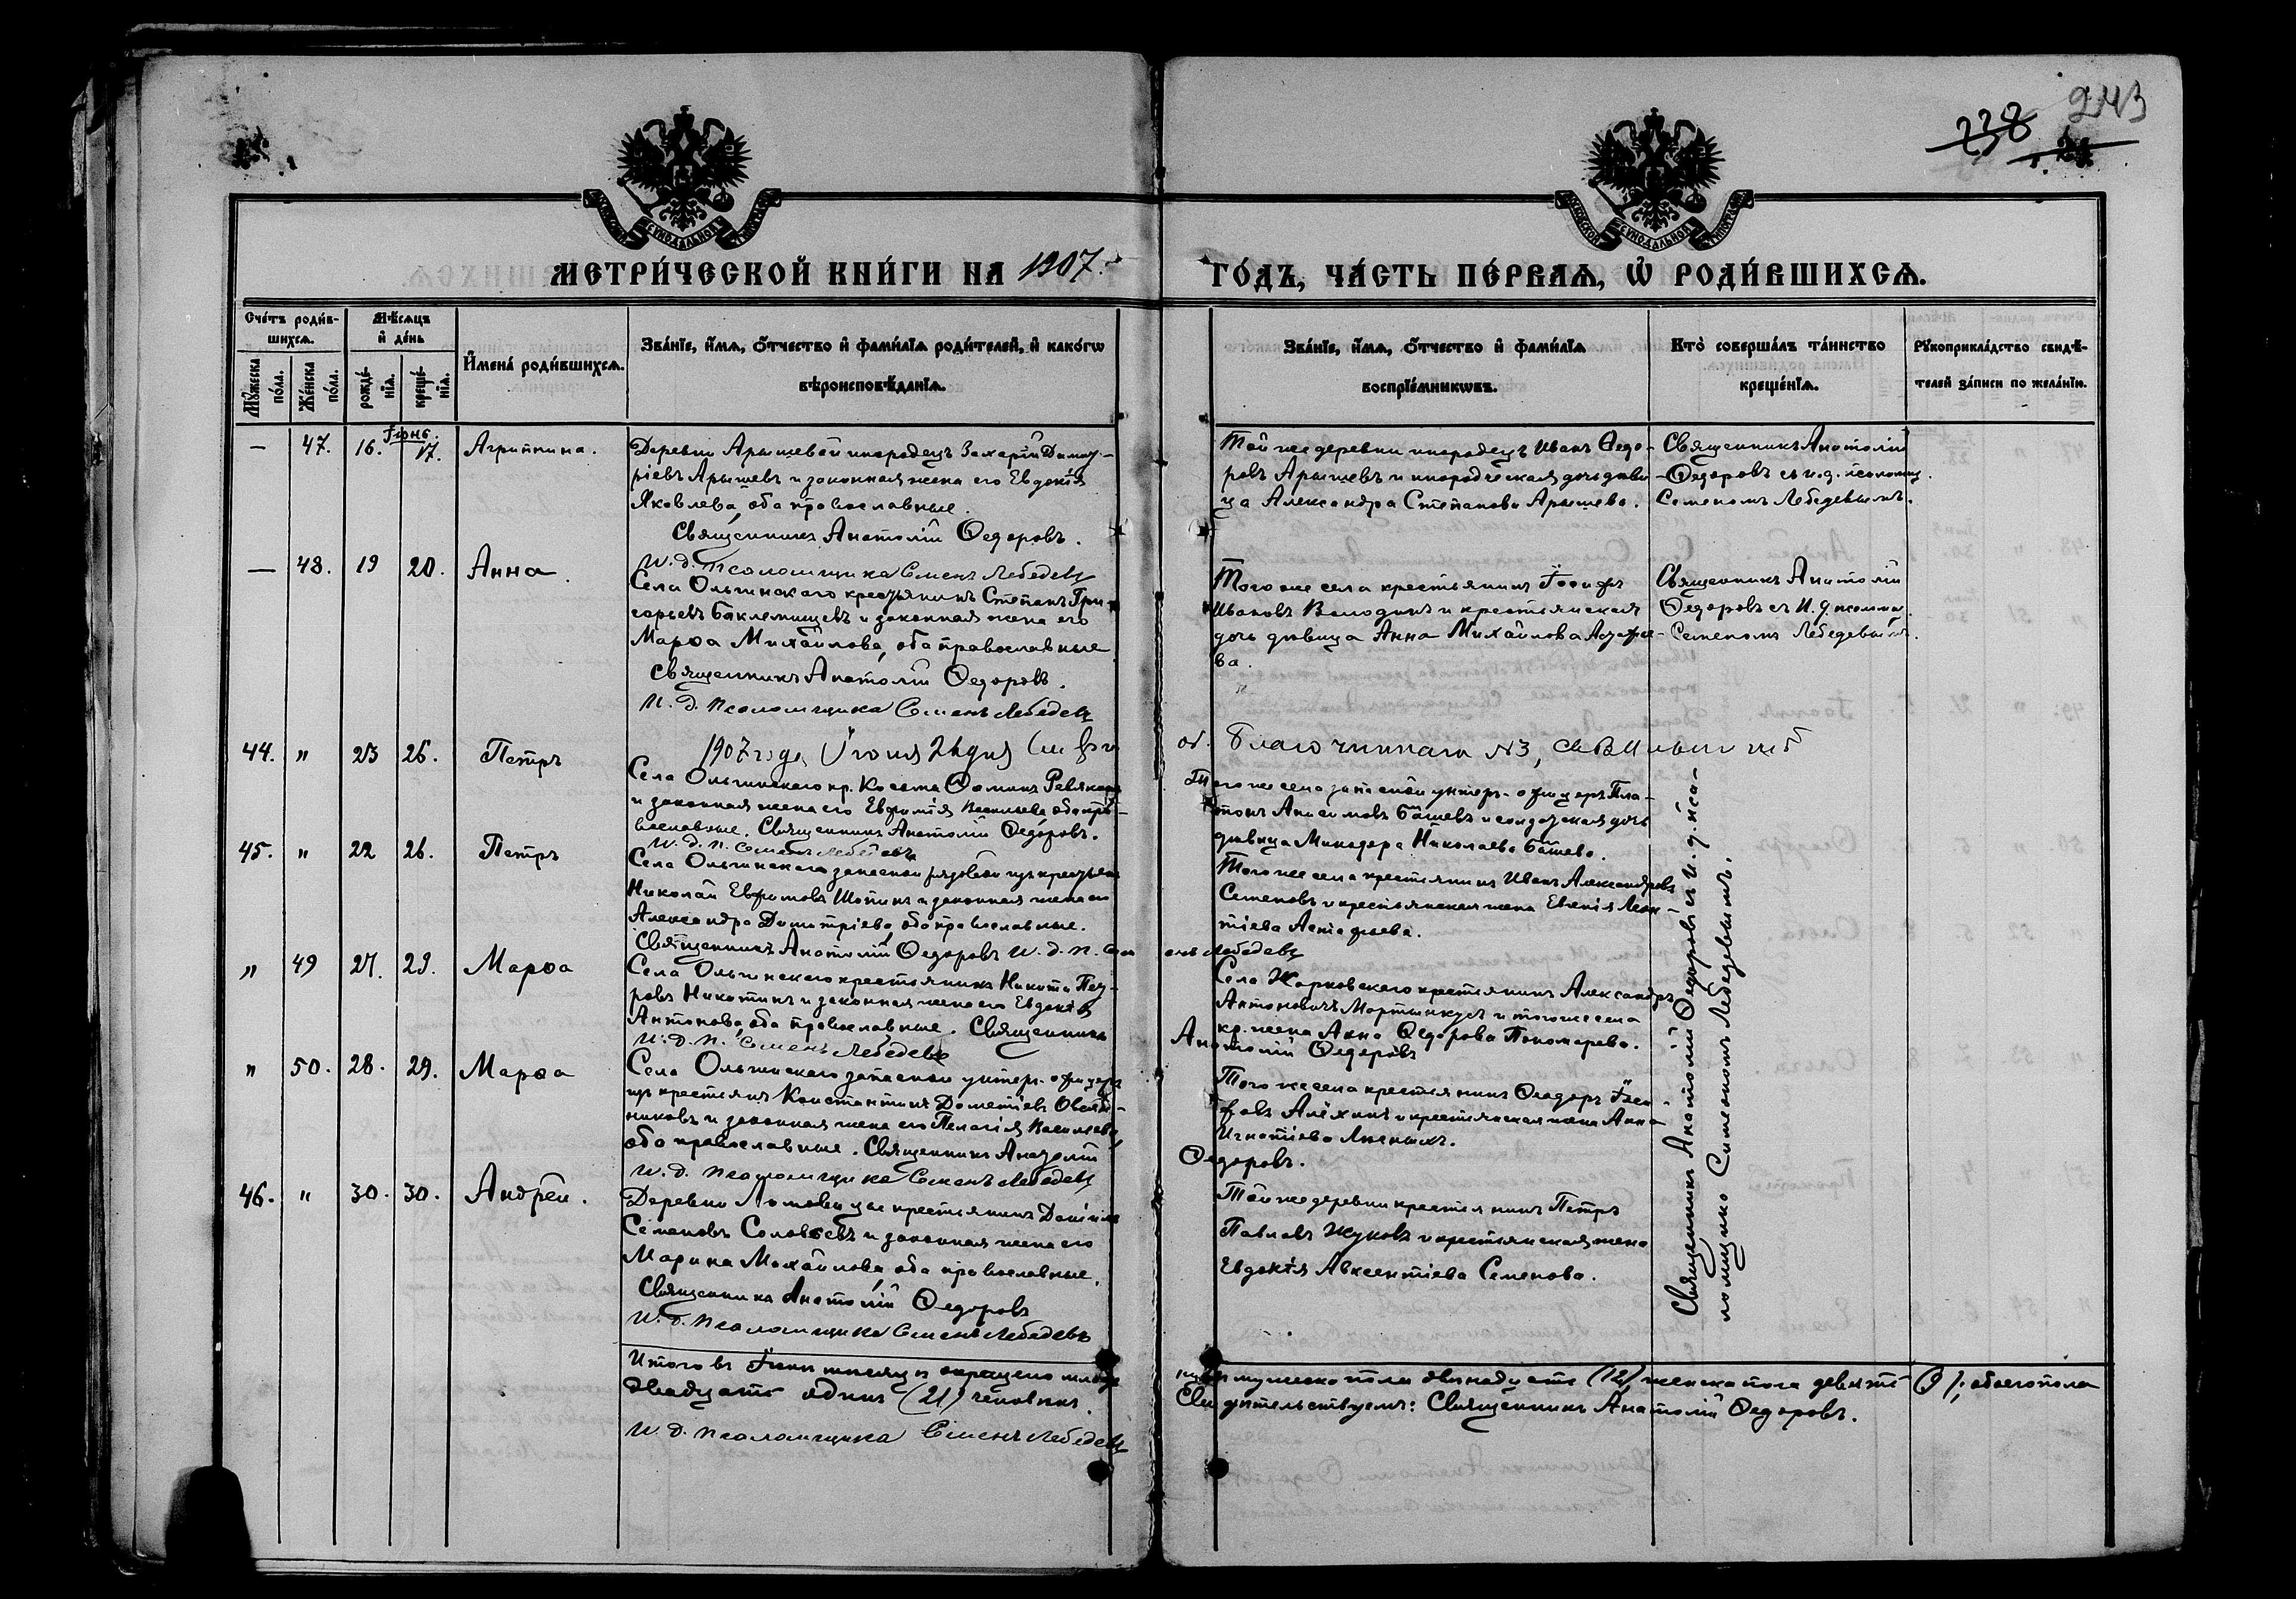 243
238
МЕТРИ́ЧЕСКОЙ КНИ́ГИ НА 1907.
ГО́ДЪ, ЧА́СТЬ ПЕ́РВАѦ, Ѡ РОДИ́ВШИХСѦ.
Сче́тъ роди́в-
шихсѧ.
Мꙋ́жеска по́ла.
Же́нска по́ла.
Мѣ́сѧцъ
и҆ де́нь
рожде́нїѧ.
креще́нїѧ.
И҆мена̀ роди́вшихсѧ.
Зва́нїе, и҆́мѧ, ѻ҆́тчество и҆ фами́лїѧ роди́телей, и҆ како́гѡ
вѣроисповѣ́данїѧ.
Зва́нїе, и҆́мѧ, ѻ҆́тчество и҆ фами́лїѧ
воспрїе́мникѡвъ.
Кто̀ соверша́лъ та́инство
креще́нїѧ.
Рꙋкоприкла́дство свидѣ́-
телей за́писи по жела́нїю.
Іюнь.
— 47. 16. 17. Агриппина.
Деревни Арышевой инородецъ Захарій Димит-
ріевъ Арышевъ и законная жена его Евдокія
Яковлева, оба православные.
Священникъ Анатолій Ѳедоровъ.
И. д. Псаломщика Семенъ Лебедевъ
Той же деревни инородецъ Иванъ Ѳедо-
ровъ Арышевъ и инородческая дочь дѣви
ца Александра Степанова Арышева.
Священникъ Анатолій
Ѳедоровъ съ и.д. псаломщ.
Семеномъ Лебедевымъ.
— 48. 19 20. Анна.
Села Ольгинскаго крестьянинъ Степанъ Гри-
горьевъ Баклемищевъ и законная жена его
Марѳа Михайлова, оба православные
Священникъ Анатолій Ѳедоровъ.
И. д. Псаломщика Семенъ Лебедевъ
Того же села крестьянинъ Іосифъ
Ивановъ Володинъ и крестьянская
дочь дѣвица Анна Михайлова
ва.
Священникъ Анатолій
Ѳедоровъ съ И. д. псаломщ.
Семеномъ Лебедевымъ.
1907 года Іюня 24 дня
Благочиннаго №3,
44. " 23 26. Петръ
Села Ольгинскаго кр. Косьма Ѳоминъ Ревякинъ
и законная жена его Евфимія Васильева оба пра-
вославные. Священникъ Анатолій Ѳедоровъ.
И. д. п. Семенъ Лебедевъ
Того же села запасной унтеръ-офицеръ Пла-
тонъ Анисимовъ Башевъ и солдатская дочь
дѣвица Минодора Николаева Башева.
45. " 22 26. Петръ
Села Ольгинскаго запасной рядовой изъ крестьянъ
Николай Евфимовъ Шопинъ и законная жена его
Александра Димитріева, оба православные.
Священникъ Анатолій Ѳедоровъ И. д. п. Семенъ Лебедевъ
Того же села крестьянинъ Иванъ Александровъ
Семеновъ и крестьянская жена Евгенія Леон-
тіева Астафьева.
" 49 27. 29. Марѳа
Села Ольгинскаго крестьянинъ Никита Пет-
ровъ Никитинъ и законная жена его Евдокія
Антонова, оба православные. Священникъ Анатолій Ѳедоровъ
И. д. п. Семенъ Лебедевъ
Села Жарковскаго крестьянинъ Александръ
Антоновичъ Мартынкусъ и того же села
кр. жена Анна Ѳедорова Пономарева.
" 50. 28. 29. Марѳа
Села Ольгинскаго запасной унтеръ-офицеръ
изъ крестьянъ Константинъ Дометіевъ Овсян-
никовъ и законная жена его Пелагія Васильева,
оба православные. Священникъ Анатолій Ѳедоровъ.
И. д. Псаломщика Семенъ Лебедевъ
Того же села крестьянинъ Ѳеодоръ
Алёхинъ и крестьянская жена Анна
Игнатіева
46. " 30. 30. Андрей.
Деревни крестьянинъ Даніилъ
Семеновъ Соловьевъ и законная жена его
Марина Михайлова, оба православные.
Священникъ Анатолій Ѳедоровъ
И. д. Псаломщика Семенъ Лебедевъ
Той же деревни крестьянинъ Петръ
Павловъ Жуковъ и крестьянская жена
Евдокія Авксентіева Семенова.
Священникъ Анатолій Ѳедоровъ съ И. д. пса-
ломщика Симеономъ Лебедевымъ.
Итого въ Іюнѣ мѣсяцѣ окрещено мужеска пола двѣнадцать (12) женска пола девять (9), обоего пола
двадцать одинъ (21) человѣкъ. Свидѣтельствуемъ: Священникъ Анатолій Ѳедоровъ.
И. д. псаломщика Семенъ Лебедевъ